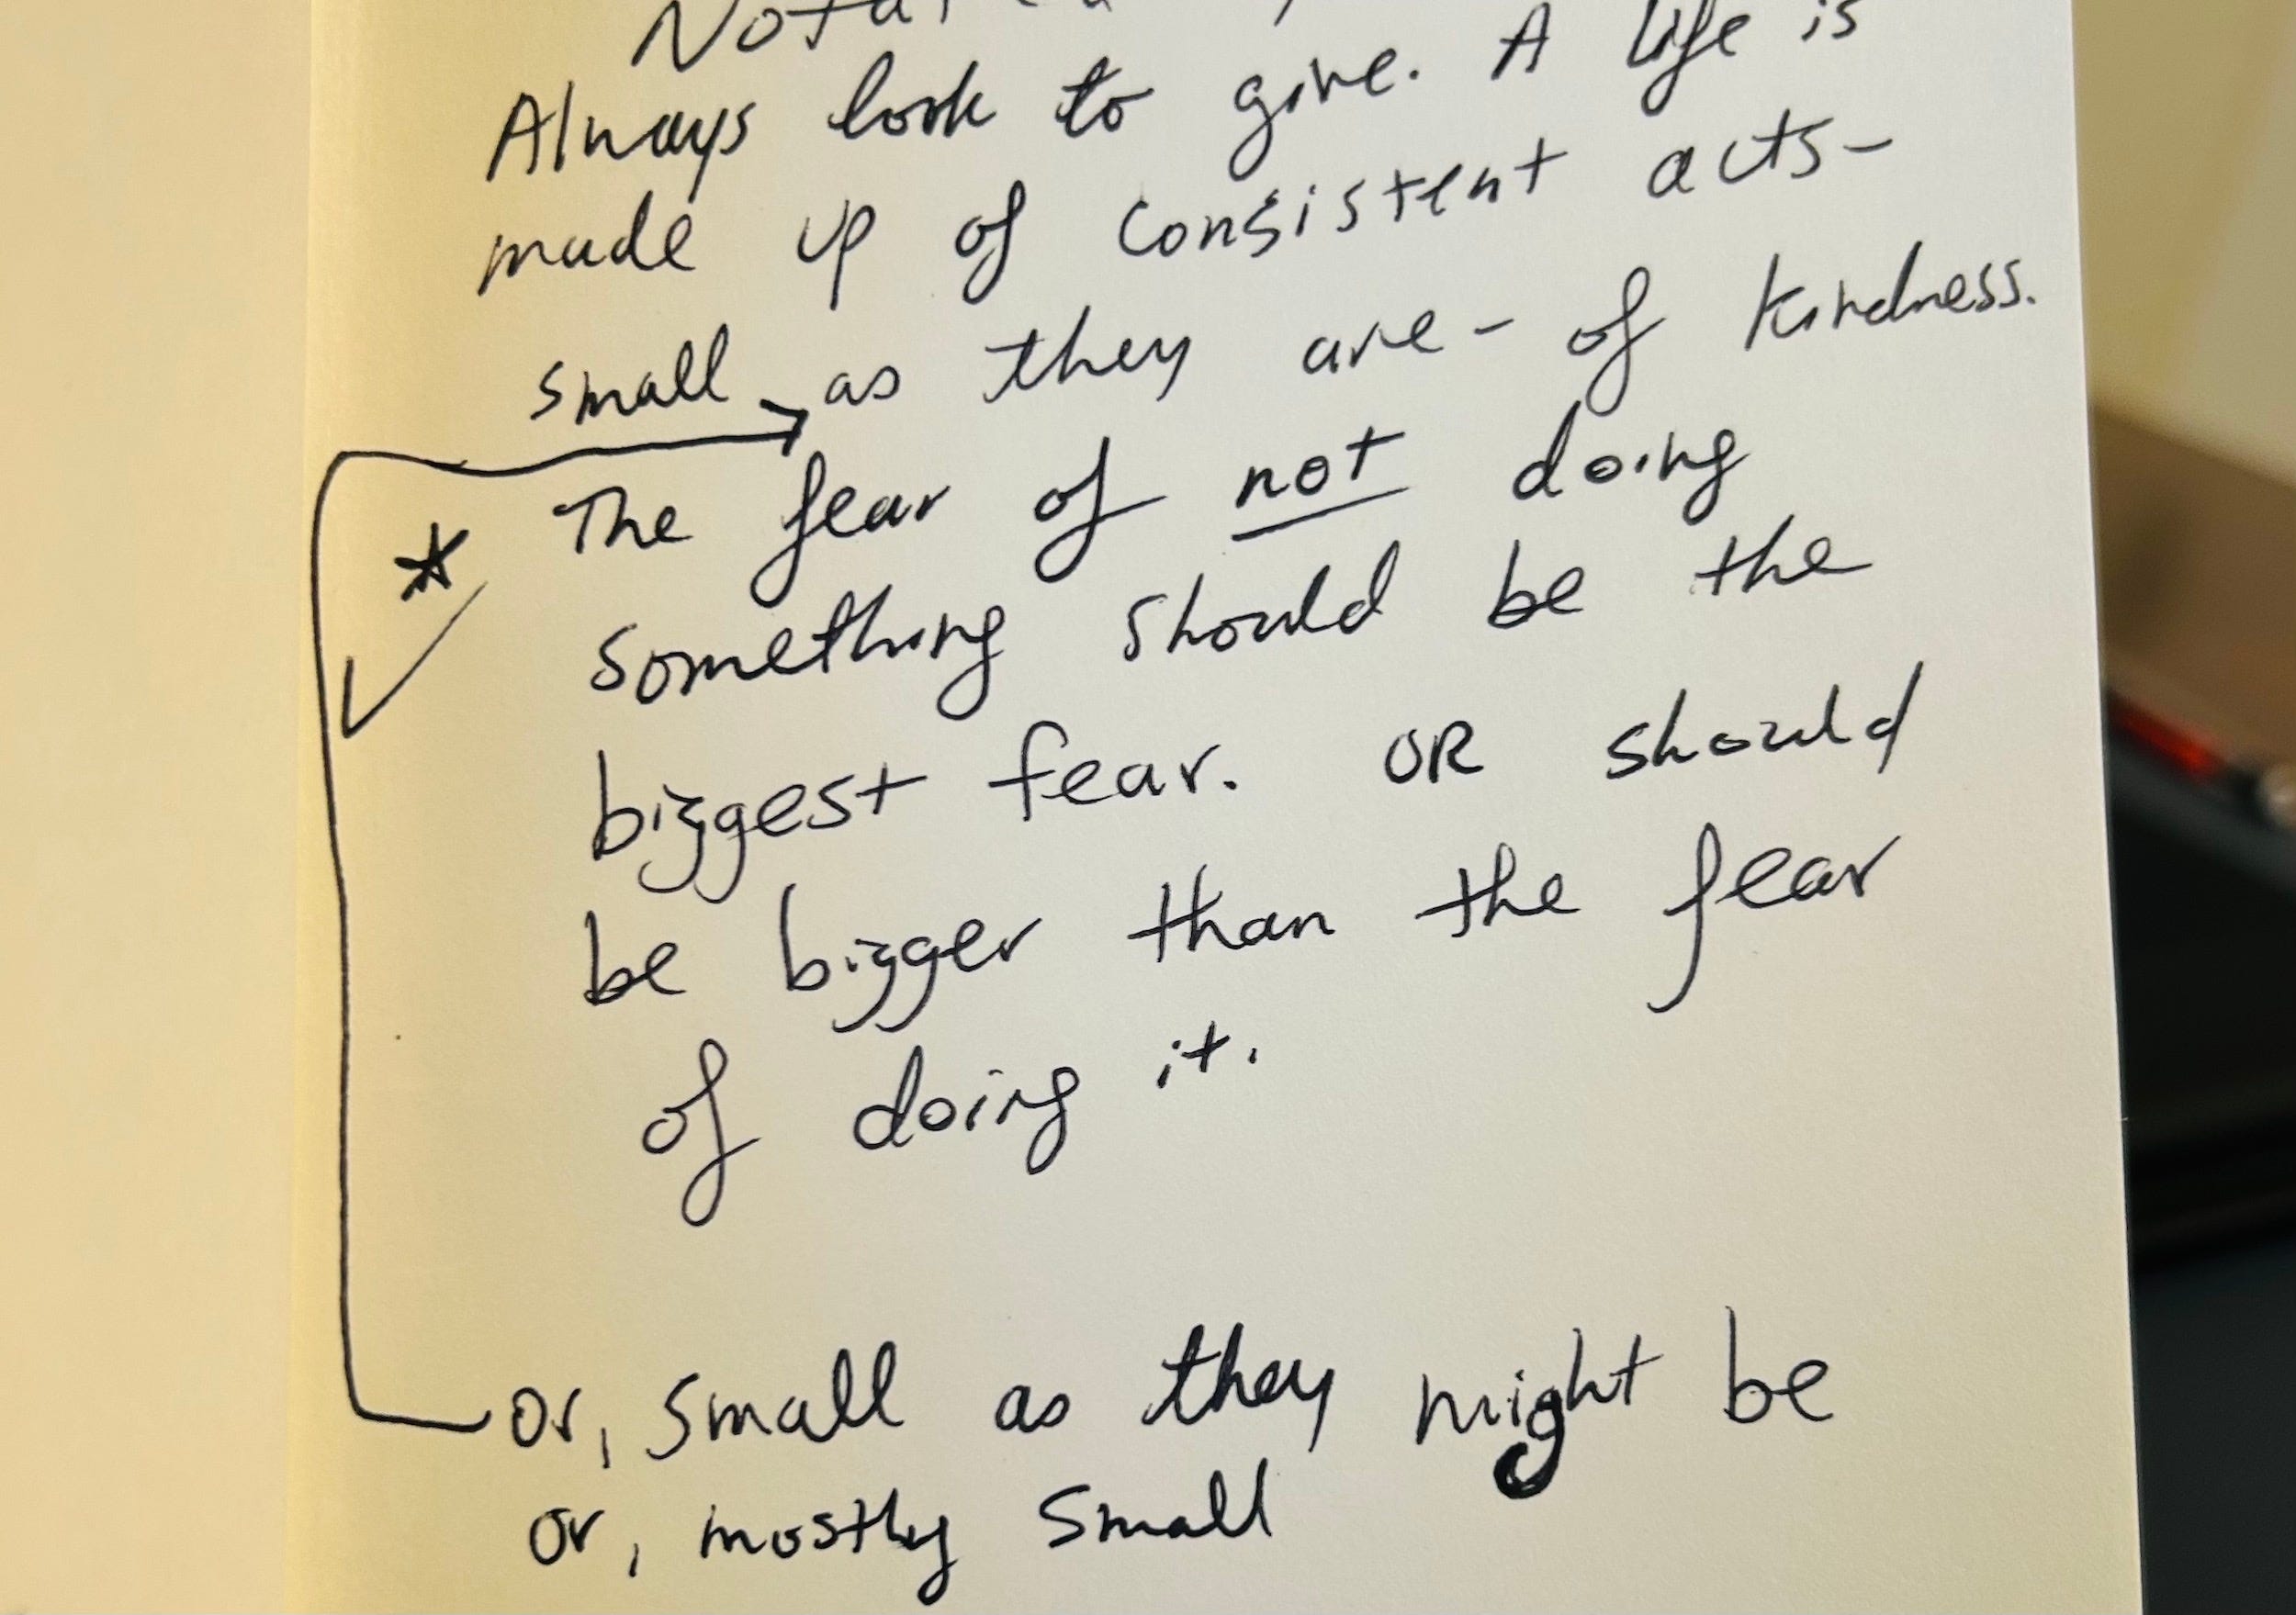 Always look to give. A life is
made up of consistent acts-
small as they are - of kindness.
The fear of not doing
something should be the
biggest fear. OR should
be bigger than the fear
of doing it.
or, small as they might be
or, mostly small